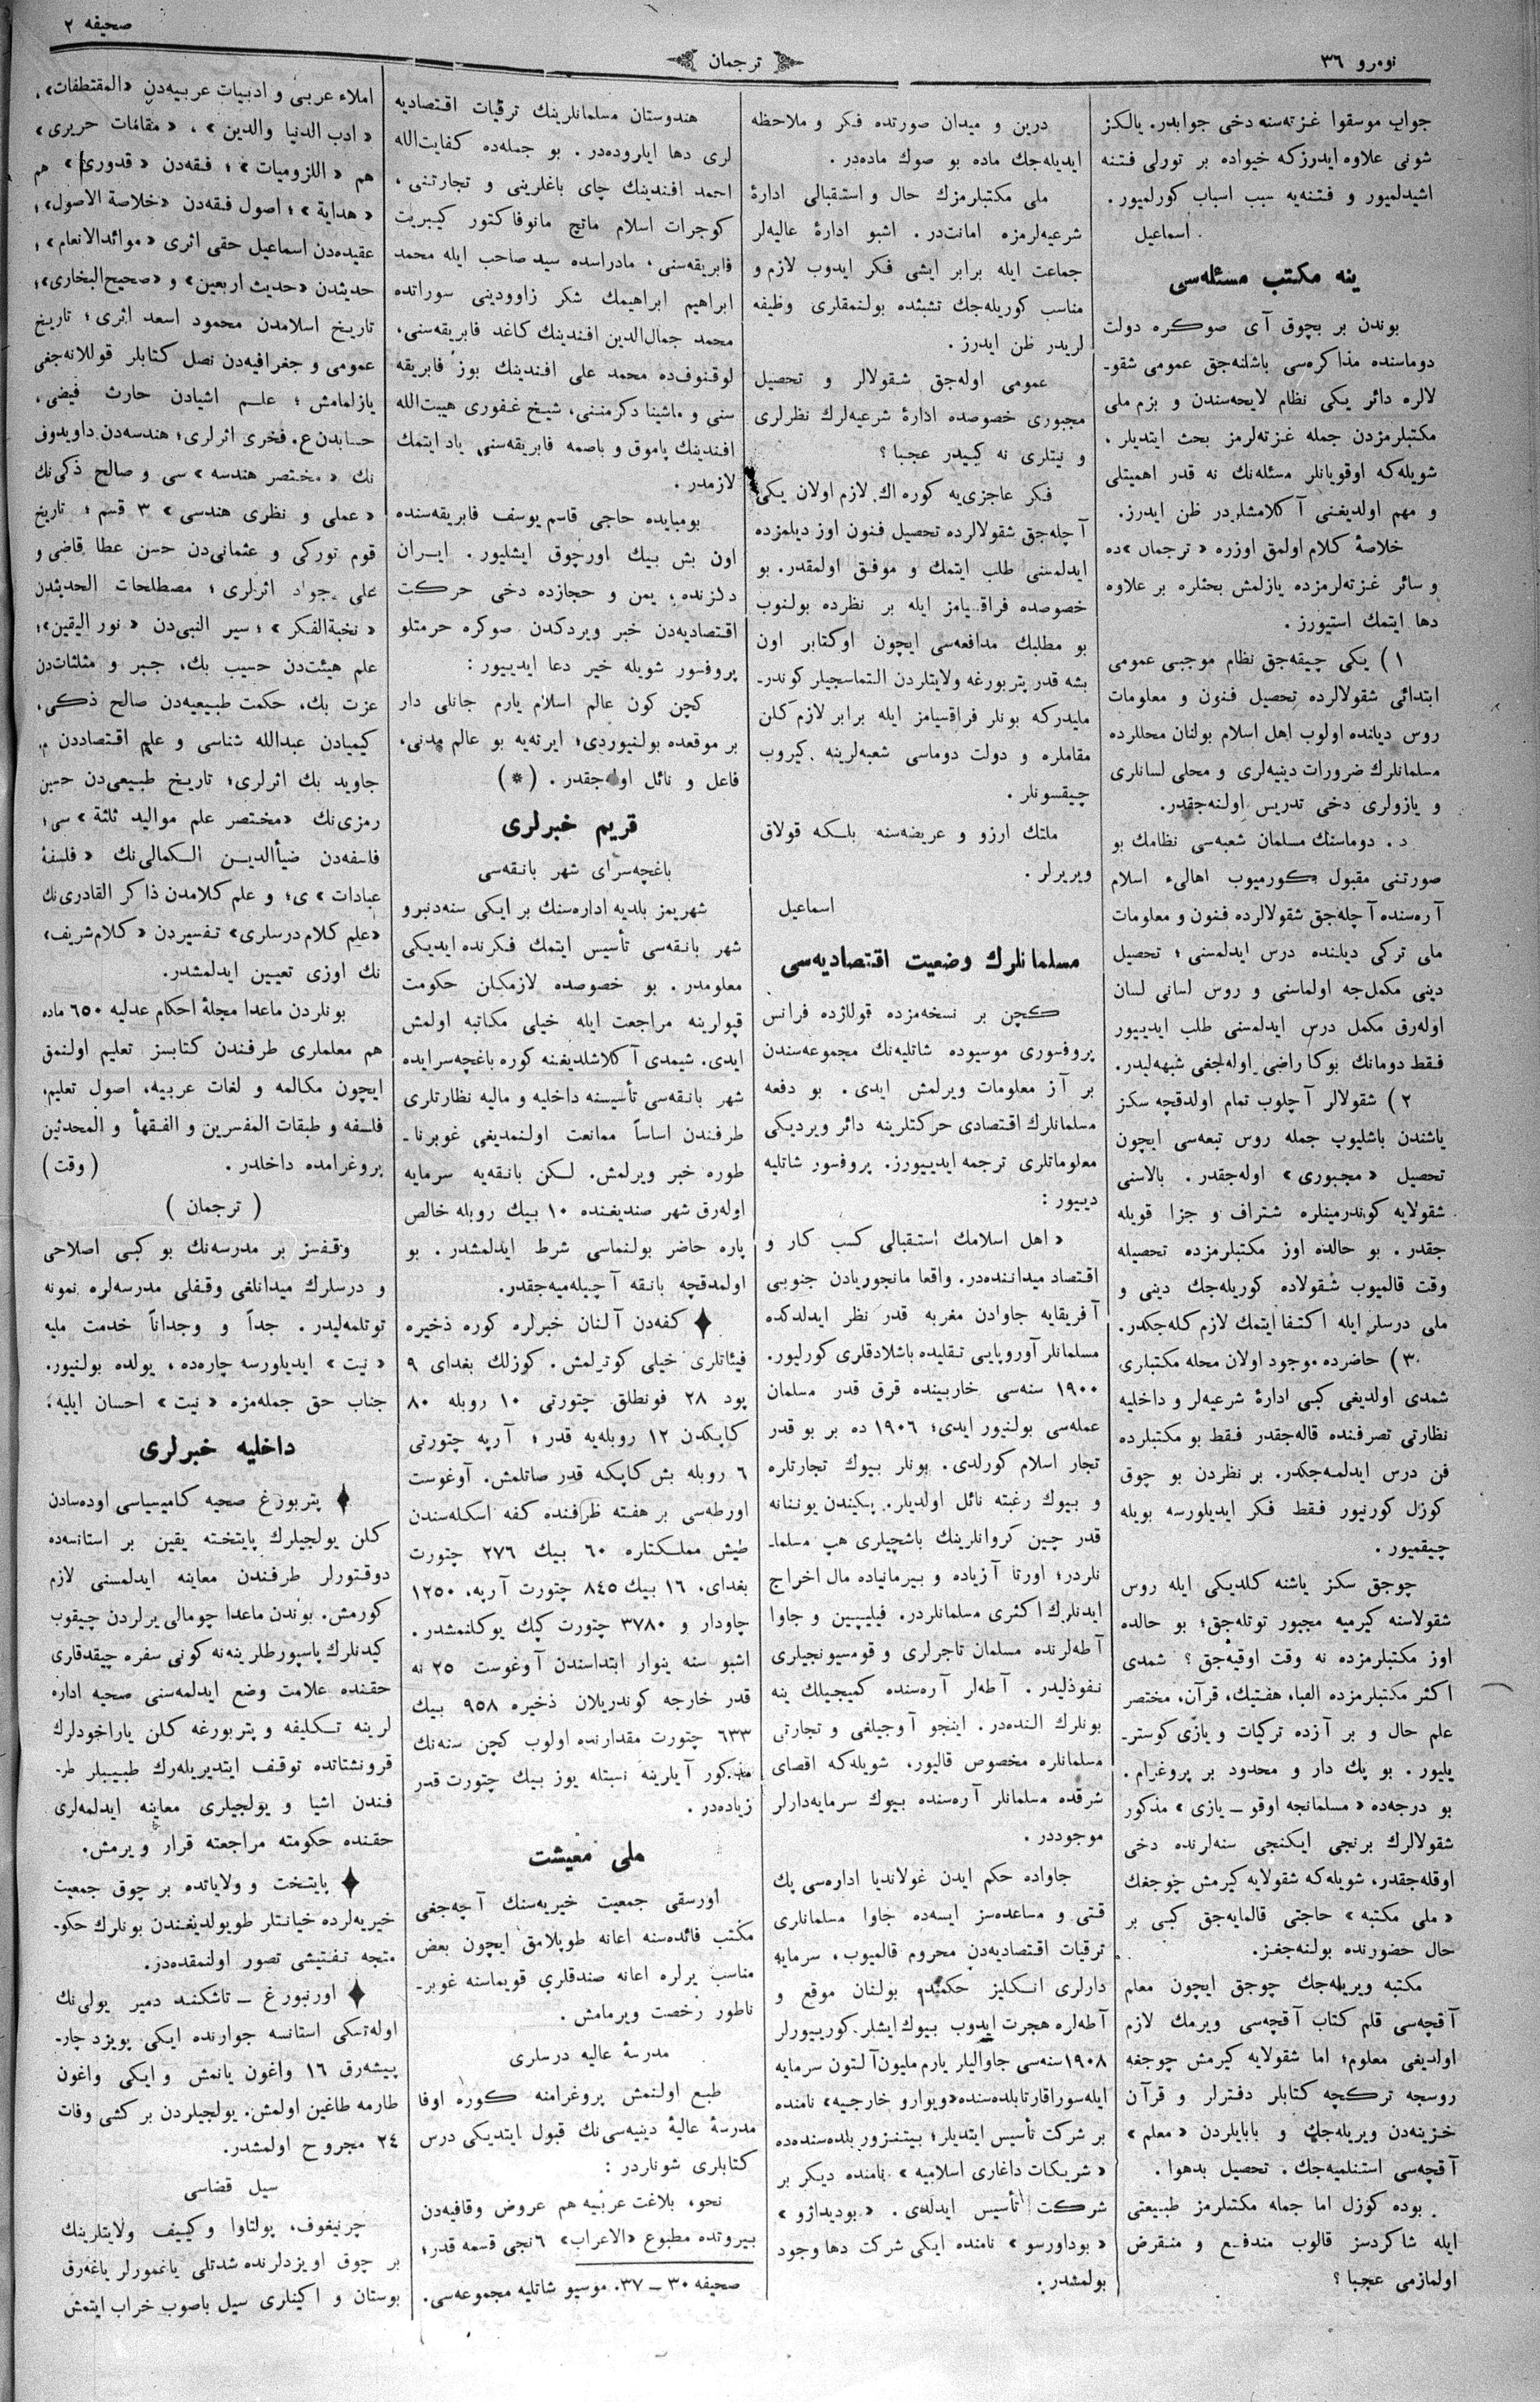 نومرو ٣٦
ترجمان
صحيفه ٢
جواب موسقوا غزته‌سنه دخی جوابدر. يالكز
شونی علاوه ايدرزكه خيواده بر تورلی فتنه
اشيدلميور و فتنه‌يه سبب اسباب كورلميور.
اسماعيل
ينه مكتب مسئله‌سی
بوندن بر بچوق آی صوكره دولت
دوماسنده مذاكره‌سی باشلنه‌جق عمومی شقو-
لالره دائر يكی نظام لايحه‌سندن و بزم ملی
مكتبلرمزدن جمله غزته‌لرمز بحث ايتديلر.
شويله‌كه اوقويانلر مسئله‌نك نه قدر اهميتلی
و مهم اولديغنی آكلامشلردر ظن ايدرز.
خلاصۀ كلام اولمق اوزره «ترجمان»ده
و سائر غزته‌لرمزده يازلمش بحثلره بر علاوه
دها ايتمك استيورز.
١) يكی چيقه‌جق نظام موجبی عمومی
ابتدائی شقولالرده تحصيل فنون و معلومات
روس ديلنده اولوب اهل اسلام بولنان محللرده
مسلمانلرك ضرورات دينيه‌لری و محلی لسانلری
و يازولری دخی تدريس اولنه‌جقدر.
د. دوماسنك مسلمان شعبه‌سی نظامك بو
صورتنی مقبول كورميوب اهالیء اسلام
آره‌سنده آچله‌جق شقولالرده فنون و معلومات
ملی تركی ديلنده درس ايدلمسنی؛ تحصيل
دينی مكمل‌جه اولماسنی و روس لسانی لسان
اوله‌رق مكمل درس ايدلمسنی طلب ايدييور
فقط دومانك بوكا راضی اوله‌جغی شبهه‌ليدر.
٢) شقولالر آچلوب تمام اولدقچه سكز
ياشندن باشليوب جمله روس تبعه‌سی ايچون
تحصيل «مجبوری» اوله‌جقدر. بالاسنی
شقولايه كوندرمينلره شتراف و جزا قويله
جقدر. بو حالده اوز مكتبلرمزده تحصيله
وقت قالميوب شقولاده كوريله‌جك دينی و
ملی درسلر ايله اكتفا ايتمك لازم كله‌جكدر.
٣) حاضرده موجود اولان محله مكتبلری
شمدی اولديغی كبی ادارۀ شرعيه‌لر و داخليه
نظارتی تصرفنده قاله‌جقدر فقط بو مكتبلرده
فن درس ايدلمه‌جكدر. بر نظردن بو چوق
كوزل كورنيور فقط فكر ايديلورسه بويله
چيقميور.
چوجق سكز ياشنه كلديكی ايله روس
شقولاسنه كيرميه مجبور توتله‌جق؛ بو حالده
اوز مكتبلرمزده نه وقت اوقيه‌جق؟ شمدی
اكثر مكتبلرمزده الفبا، هفتيك، قرآن، مختصر
علم حال و بر آزده تركيات و يازی كوستر-
يليور. بو پك دار و محدود بر پروغرام.
بو درجه‌ده «مسلمانجه اوقو ـ يازی» مذكور
شقولالرك برنجی ايكنجی سنه‌لرنده دخی
اوقله‌جقدر، شويله‌كه شقولايه كيرمش چوجغك
«ملی مكتبه» حاجتی قالمايه‌جق كبی بر
حال حضورنده بولنه‌جغز.
مكتبه ويريله‌جك چوجق ايچون معلم
آقچه‌سی قلم كتاب آقچه‌سی ويرمك لازم
اولديغی معلوم؛ اما شقولايه كيرمش چوجغه
روسجه تركچه كتابلر دفترلر و قرآن
خزينه‌دن ويريله‌جك و بابايلردن «معلم»
آقچه‌سی استنلميه‌جك. تحصيل بدهوا.
بوده كوزل اما جمله مكتبلرمز طبيعتی
ايله شاكردسز قالوب مندفع و منقرض
اولمازمی عجبا؟
درين و ميدان صورتده فكر و ملاحظه
ايديله‌جك ماده بو صوك ماده‌در.
ملی مكتبلرمزك حال و استقبالی ادارۀ
شرعيه‌لرمزه امانت‌در. اشبو ادارۀ عاليه‌لر
جماعت ايله برابر ايشی فكر ايدوب لازم و
مناسب كوريله‌جك تشبثده بولنمقلری وظيفه
لريدر ظن ايدرز.
عمومی اوله‌جق شقولالر و تحصيل
مجبوری خصوصده ادارۀ شرعيه‌لرك نظرلری
و نيتلری نه كبيدر عجبا؟
فكر عاجزی‌يه كوره اك لازم اولان يكی
آچله‌جق شقولالرده تحصيل فنون اوز ديلمزده
ايدلمسنی طلب ايتمك و موفق اولمقدر. بو
خصوصده فراقسيامز ايله بر نظرده بولنوب
بو مطلبك مدافعه‌سی ايچون اوكتابر اون
بشه قدر پتربورغه ولايتلردن التماسجيلر كوندر-
مليدركه بونلر فراقسيامز ايله برابر لازم كلن
مقاملره و دولت دوماسی شعبه‌لرينه كيروب
چيقسونلر.
ملتك ارزو و عريضه‌سنه بلكه قولاق
ويريرلر.
اسماعيل
مسلمانلرك وضعيت اقتصاديه‌سی
كچن بر نسخه‌مزده قوللاژده فرانس
پروفسوری موسيوده شاتليه‌نك مجموعه‌سندن
بر آز معلومات ويرلمش ايدی. بو دفعه
مسلمانلرك اقتصادی حركتلرينه دائر ويرديكی
معلوماتلری ترجمه ايدييورز. پروفسور شاتليه
دييور:
«اهل اسلامك استقبالی كسب كار و
اقتصاد ميداننده‌در. واقعا مانجوريادن جنوبی
آفريقايه جاوادن مغربه قدر نظر ايدلدكده
مسلمانلر آوروپايی تقليده باشلادقلری كورليور.
١٩٠٠ سنه‌سی خاربينده قرق قدر مسلمان
عمله‌سی بولنيور ايدی؛ ١٩٠٦ ده بر بو قدر
تجار اسلام كورلدی. بونلر بيوك تجارتلره
و بيوك رغبته نائل اولديلر. پكيندن يوننانه
قدر چين كروانلرينك باشچيلری هپ مسلما-
نلردر؛ اورتا آزياده و بيرمانياده مال اخراج
ايدنلرك اكثری مسلمانلردر. فيليپين و جاوا
آطه‌لرنده مسلمان تاجرلری و قومسيونجيلری
نفوذليدر. آطه‌لر آره‌سنده كميجيلك ينه
بونلرك النده‌در. اينجو آوجيلغی و تجارتی
مسلمانلره مخصوص قاليور، شويله‌كه اقصای
شرقده مسلمانلر آره‌سنده بيوك سرمايه‌دارلر
موجوددر.
جاواده حكم ايدن غولانديا اداره‌سی پك
قتی و مساعده‌سز ايسه‌ده جاوا مسلمانلری
ترقيات اقتصاديه‌دن محروم قالميوب، سرمايه
دارلری انكليز حكمنده بولنان موقع و
آطه‌لره هجرت ايدوب بيوك ايشلر كورييورلر
١٩٠٨ سنه‌سی جاواليلر يارم مليون آلتون سرمايه
ايله سوراقارتا بلده‌سنده «ويوارو خارجيه» نامنده
بر شركت تأسيس ايتديلر؛ بيتنزور بلده‌سنده‌ده
«شريكات داغاری اسلاميه» نامنده ديكر بر
شركت تأسيس ايدلدی. «بوديداژو»
«بوداورسو» نامنده ايكی شركت دها وجود
بولمشدر.
هندوستان مسلمانلرينك ترقيات اقتصاديه
لری دها ايلروده‌در. بو جمله‌ده كفايت‌الله
احمد افندينك چای باغلرينی و تجارتنی،
كوجرات اسلام ماتچ مانوفاكتور كيبريت
فابريقه‌سنی، مادراسده سيد صاحب ايله محمد
ابراهيم ابراهيمك شكر زاوودينی سوراتده
محمد جمال‌الدين افندينك كاغد فابريقه‌سنی،
لوقنوف‌ده محمد علی افندينك بوز فابريقه
سنی و ماشينا دكرمننی، شيخ غفوری هيبت‌الله
افندينك پاموق و باصمه فابريقه‌سنی ياد ايتمك
لازمدر.
بومبايده حاجی قاسم يوسف فابريقه‌سنده
اون بش بيك اورچوق ايشليور. ايران
دكزنده، يمن و حجازده دخی حركت
اقتصاديه‌دن خبر ويردكدن صوكره حرمتلو
پروفسور شويله خير دعا ايدييور:
كچن كون عالم اسلام يارم جانلی دار
بر موقعده بولنيوردی؛ ايرته‌يه بو عالم مدنی،
فاعل و نائل اوله‌جقدر. (*)
قريم خبرلری
باغچه‌سرای شهر بانقه‌سی
شهريمز بلديه اداره‌سنك بر ايكی سنه‌دنبرو
شهر بانقه‌سی تأسيس ايتمك فكرنده ايديكی
معلومدر. بو خصوصده لازمكلن حكومت
قپولرينه مراجعت ايله خيلی مكاتبه اولمش
ايدی. شيمدی آكلاشلديغنه كوره باغچه‌سرايده
شهر بانقه‌سی تأسيسنه داخليه و ماليه نظارتلری
طرفندن اساساً ممانعت اولنمديغی غوبرنا-
طوره خبر ويرلمش. لكن بانقه‌يه سرمايه
اوله‌رق شهر صنديغنده ١٠ بيك روبله خالص
پاره حاضر بولنماسی شرط ايدلمشدر. بو
اولمدقچه بانقه آچيله‌ميه‌جقدر.
كفه‌دن آلنان خبرلره كوره ذخيره
فيئاتلری خيلی كوترلمش. كوزلك بغدای ٩
پود ٢٨ فونطلق چتورتی ١٠ روبله ٨٠
كاپكدن ١٢ روبله‌يه قدر؛ آرپه چتورتی
٦ روبله بش كاپكه قدر صاتلمش. آوغوست
اورطه‌سی بر هفته ظرفنده كفه اسكله‌سندن
طيش مملكتلره ٦٠ بيك ٢٧٦ چتورت
بغدای، ١٦ بيك ٨٤٥ چتورت آرپه، ١٢٥٠
چاودار و ٣٧٨٠ چتورت كپك يوكلنمشدر.
اشبو سنه ينوار ابتداسندن آوغوست ٢٥ نه
قدر خارجه كوندريلان ذخيره ٩٥٨ بيك
٦٣٣ چتورت مقدارنده اولوب كچن سنه‌نك
مذكور آيلرينه نسبتله يوز بيك چتورت قدر
زياده‌در.
ملی معيشت
اورسقی جمعيت خيريه‌سنك آچه‌جغی
مكتب فائده‌سنه اعانه طوپلامق ايچون بعض
مناسب يرلره اعانه صندقلری قويماسنه غوبر-
ناطور رخصت ويرمامش.
مدرسۀ عاليه درسلری
طبع اولنمش پروغرامنه كوره اوفا
مدرسۀ عاليۀ دينيه‌سی‌نك قبول ايتديكی درس
كتابلری شونلردر:
نحو، بلاغت عربيه هم عروض وقافيه‌دن
بيروتده مطبوع «الاعراب» ٦نجی قسمه قدر؛
صحيفه ٣٠ ـ ٣٧. موسيو شاتليه مجموعه‌سی.
املاء عربی و ادبيات عربيه‌دن «المقتطفات»،
«ادب الدنيا والدين»، «مقامات حريری»
هم «اللزوميات»؛ فقه‌دن «قدوری» هم
«هداية»؛ اصول فقه‌دن «خلاصة الاصول»؛
عقيده‌دن اسماعيل حقی اثری «موائدالانعام»؛
حديثدن «حديث اربعين» و «صحيح‌البخاری»؛
تاريخ اسلامدن محمود اسعد اثری؛ تاريخ
عمومی و جغرافيه‌دن نصل كتابلر قوللانه‌جغی
يازلمامش؛ علم اشيادن حارث فيضی،
حسابدن ع. فخری اثرلری؛ هندسه‌دن داويدوف
نك «مختصر هندسه»سی و صالح ذكی‌نك
«عملی و نظری هندسی» ٣ قسم؛ تاريخ
قوم توركی و عثمانی‌دن حسن عطا قاضی و
علی جواد اثرلری؛ مصطلحات الحديثدن
«نخبةالفكر»؛ سير النبی‌دن «نور اليقين»؛
علم هيئت‌دن حسيب بك، جبر و مثلثات‌دن
عزت بك، حكمت طبيعيه‌دن صالح ذكی،
كيميادن عبدالله شناسی و علم اقتصاددن م.
جاويد بك اثرلری؛ تاريخ طبيعی‌دن حسين
رمزی‌نك «مختصر علم مواليد ثلثة»سی؛
فلسفه‌دن ضياءالدين الكمالی‌نك «فلسفۀ
عبادات»ی؛ و علم كلامدن ذاكر القادری‌نك
«علم كلام درسلری» تفسيردن «كلام شريف»
نك اوزی تعيين ايدلمشدر.
بونلردن ماعدا مجلۀ احكام عدليه ٦٥٠ ماده
هم معلملری طرفندن كتابسز تعليم اولنمق
ايچون مكالمه و لغات عربيه، اصول تعليم،
فلسفه و طبقات المفسرين و الفقهأ و المحدثين
پروغرامده داخلدر. (وقت)
(ترجمان)
وقفسز بر مدرسه‌نك بو كبی اصلاحی
و درسلرك ميدانلغی وقفلی مدرسه‌لره نمونه
توتلمه‌ليدر. جداً و وجداناً خدمت مليه
«نيت» ايديلورسه چاره‌ده، يولده بولنيور.
جناب حق جمله‌مزه «نيت» احسان ايليه؛
داخليه خبرلری
پتربورغ صحيه كاميسياسی اوده‌سادن
كلن يولجيلرك پايتخته يقين بر استانسه‌ده
دوقتورلر طرفندن معاينه ايدلمسنی لازم
كورمش. بوندن ماعدا چومالی يرلردن چيقوب
كيدنلرك پاسپورطلرينه نه كونی سفره چيقدقلری
حقنده علامت وضع ايدلمه‌سنی صحيه اداره
لرينه تكليفه و پتربورغه كلن پاراخودلرك
قرونشتاتده توقف ايتديريله‌رك طبيبلر طر-
فندن اشيا و يولجيلری معاينه ايدلمه‌لری
حقنده حكومته مراجعته قرار ويرمش.
پايتخت و ولاياتده بر چوق جمعيت
خيريه‌لرده خيانتلر طويولديغندن بونلرك حكو-
متجه تفتيشی تصور اولنمقده‌در.
اورنبورغ ـ تاشكند دمير يولی‌نك
اوله‌تسكی استانسه جوارنده ايكی پويزد چار-
پيشه‌رق ١٦ واغون يانمش و ايكی واغون
طارمه طاغين اولمش. يولجيلردن بر كشی وفات
٢٤ مجروح اولمشدر.
سيل قضاسی
چرنيغوف، پولتاوا و كييف ولايتلرينك
بر چوق اويزدلرنده شدتلی ياغمورلر ياغه‌رق
بوستان و اكينلری سيل باصوب خراب ايتمش